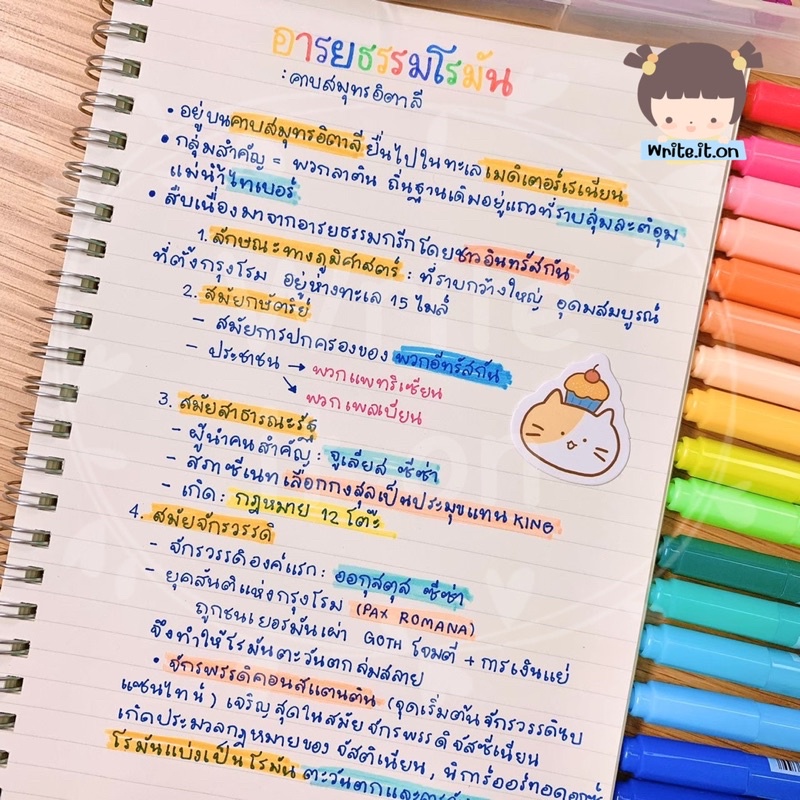 อารยธรรมโรมัน
: คาบสมุทรอิตาลี
Write.it.on
• อยู่บนคาบสมุทรอิตาลี ยื่นไปในทะเลเมดิเตอร์เรเนียน
• กลุ่มสำคัญ = พวกลาติน ถิ่นฐานเดิมอยู่แถวที่ราบลุ่มละติอุม
แม่น้ำไทเบอร์
• สืบเนื่องมาจากอารยธรรมกรีกโดยชาวอินทรัสกัน
1. ลักษณะทางภูมิศาสตร์ : ที่ราบกว้างใหญ่ อุดมสมบูรณ์
ที่ตั้งกรุงโรม อยู่ห่างทะเล 15 ไมล์
2. สมัยกษัตริย์
- สมัยการปกครองของ พวกอีทรัสกัน
- ประชาชน → พวกแพทริเซียน
↘ พวกเพลเบียน
3. สมัยสาธารณะรัฐ
- ผู้นำคนสำคัญ : จูเลียส ซีซ่า
- สภาซีเนทเลือกกงสุลเป็นประมุขแทน KING
- เกิด : กฎหมาย 12 โต๊ะ
4. สมัยจักรวรรดิ
- จักรวรรดิองค์แรก : ออกุสตุส ซีซ่า
- ยุคสันติแห่งกรุงโรม (PAX ROMANA)
ถูกชนเยอรมันเผ่า GOTH โจมตี + การเงินแย่
จึงทำให้โรมันตะวันตกล่มสลาย
• จักรพรรดิคอนสแตนติน (จุดเริ่มต้นจักรวรรดิไบ
แซนไทน์) เจริญสุดในสมัยจักรพรรดิจัสซีเนียน
เกิดประมวลกฎหมายของ จัสติเนียน, นิการ์ออร์ทอดอกซ์
โรมันแบ่งเป็นโรมัน ตะวันตกและ